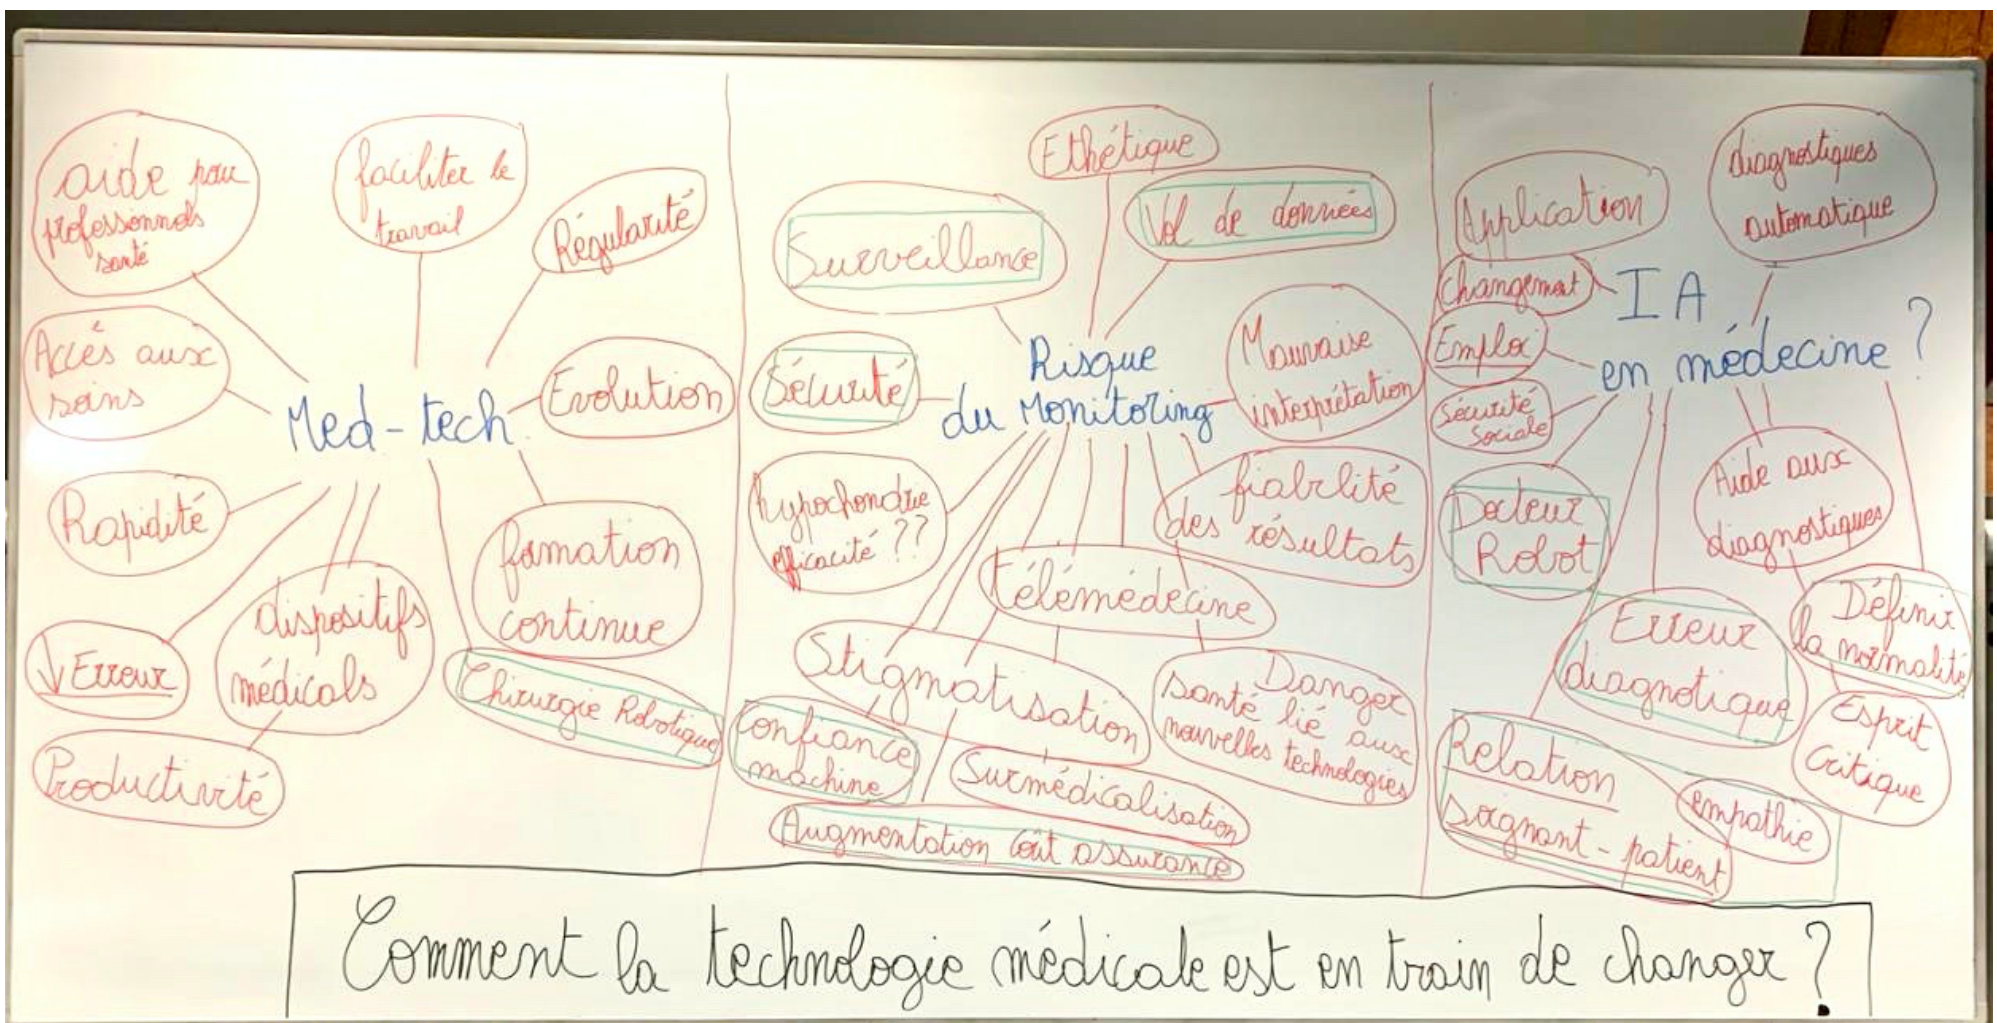 aide pour
professionnels
santé
faciliter le
travail
Régularité
Accès aux
soins
Med-tech
Evolution
Rapidité
formation
continue
↓ Erreur
dispositifs
médicals
Chirurgie Robotique
Productivité
Ethétique
Surveillance
Vol de données
Risque
du Monitoring
Sécurité
Mauvaise
interprétation
hypochondrie
efficacité ??
fiabilité
des résultats
télémédecine
Stigmatisation
Danger
santé lié aux
nouvelles technologies
confiance
machine
Surmédicalisation
Augmentation coût assurance
Application
diagnostiques
automatique
changement
IA
en médecine ?
Emploi
Sécurité
Sociale
Docteur
Robot
Aide aux
diagnostiques
Erreur
diagnotique
Définir
la normalité
Esprit
Critique
Relation
Soignant-patient
empathie
Comment la technologie médicale est en train de changer ?